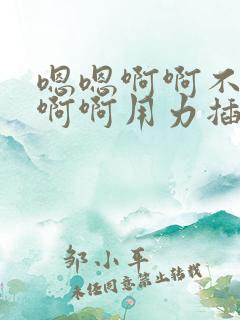 嗯嗯啊啊不
啊啊用力插
邹小军
未经同意禁止转载